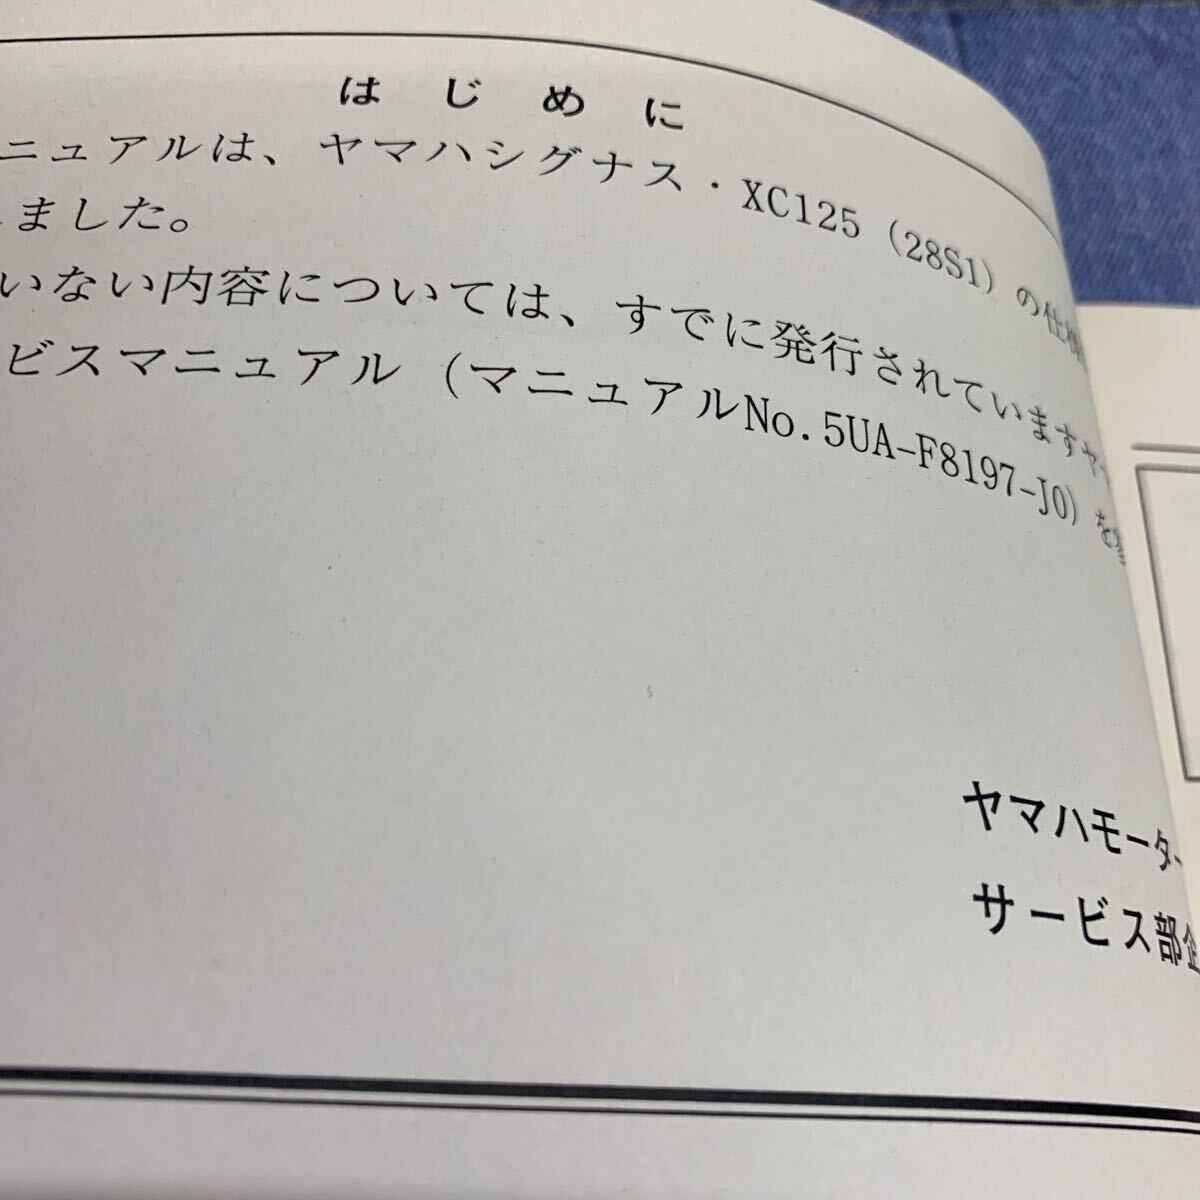 はじめに
ニュアルは、ヤマハシグナス・XC125（28S1）の仕様
しました。
いない内容については、すでに発行されていますヤ
ビスマニュアル（マニュアルNo.5UA-F8197-J0）を
ヤマハモーター
サービス部企